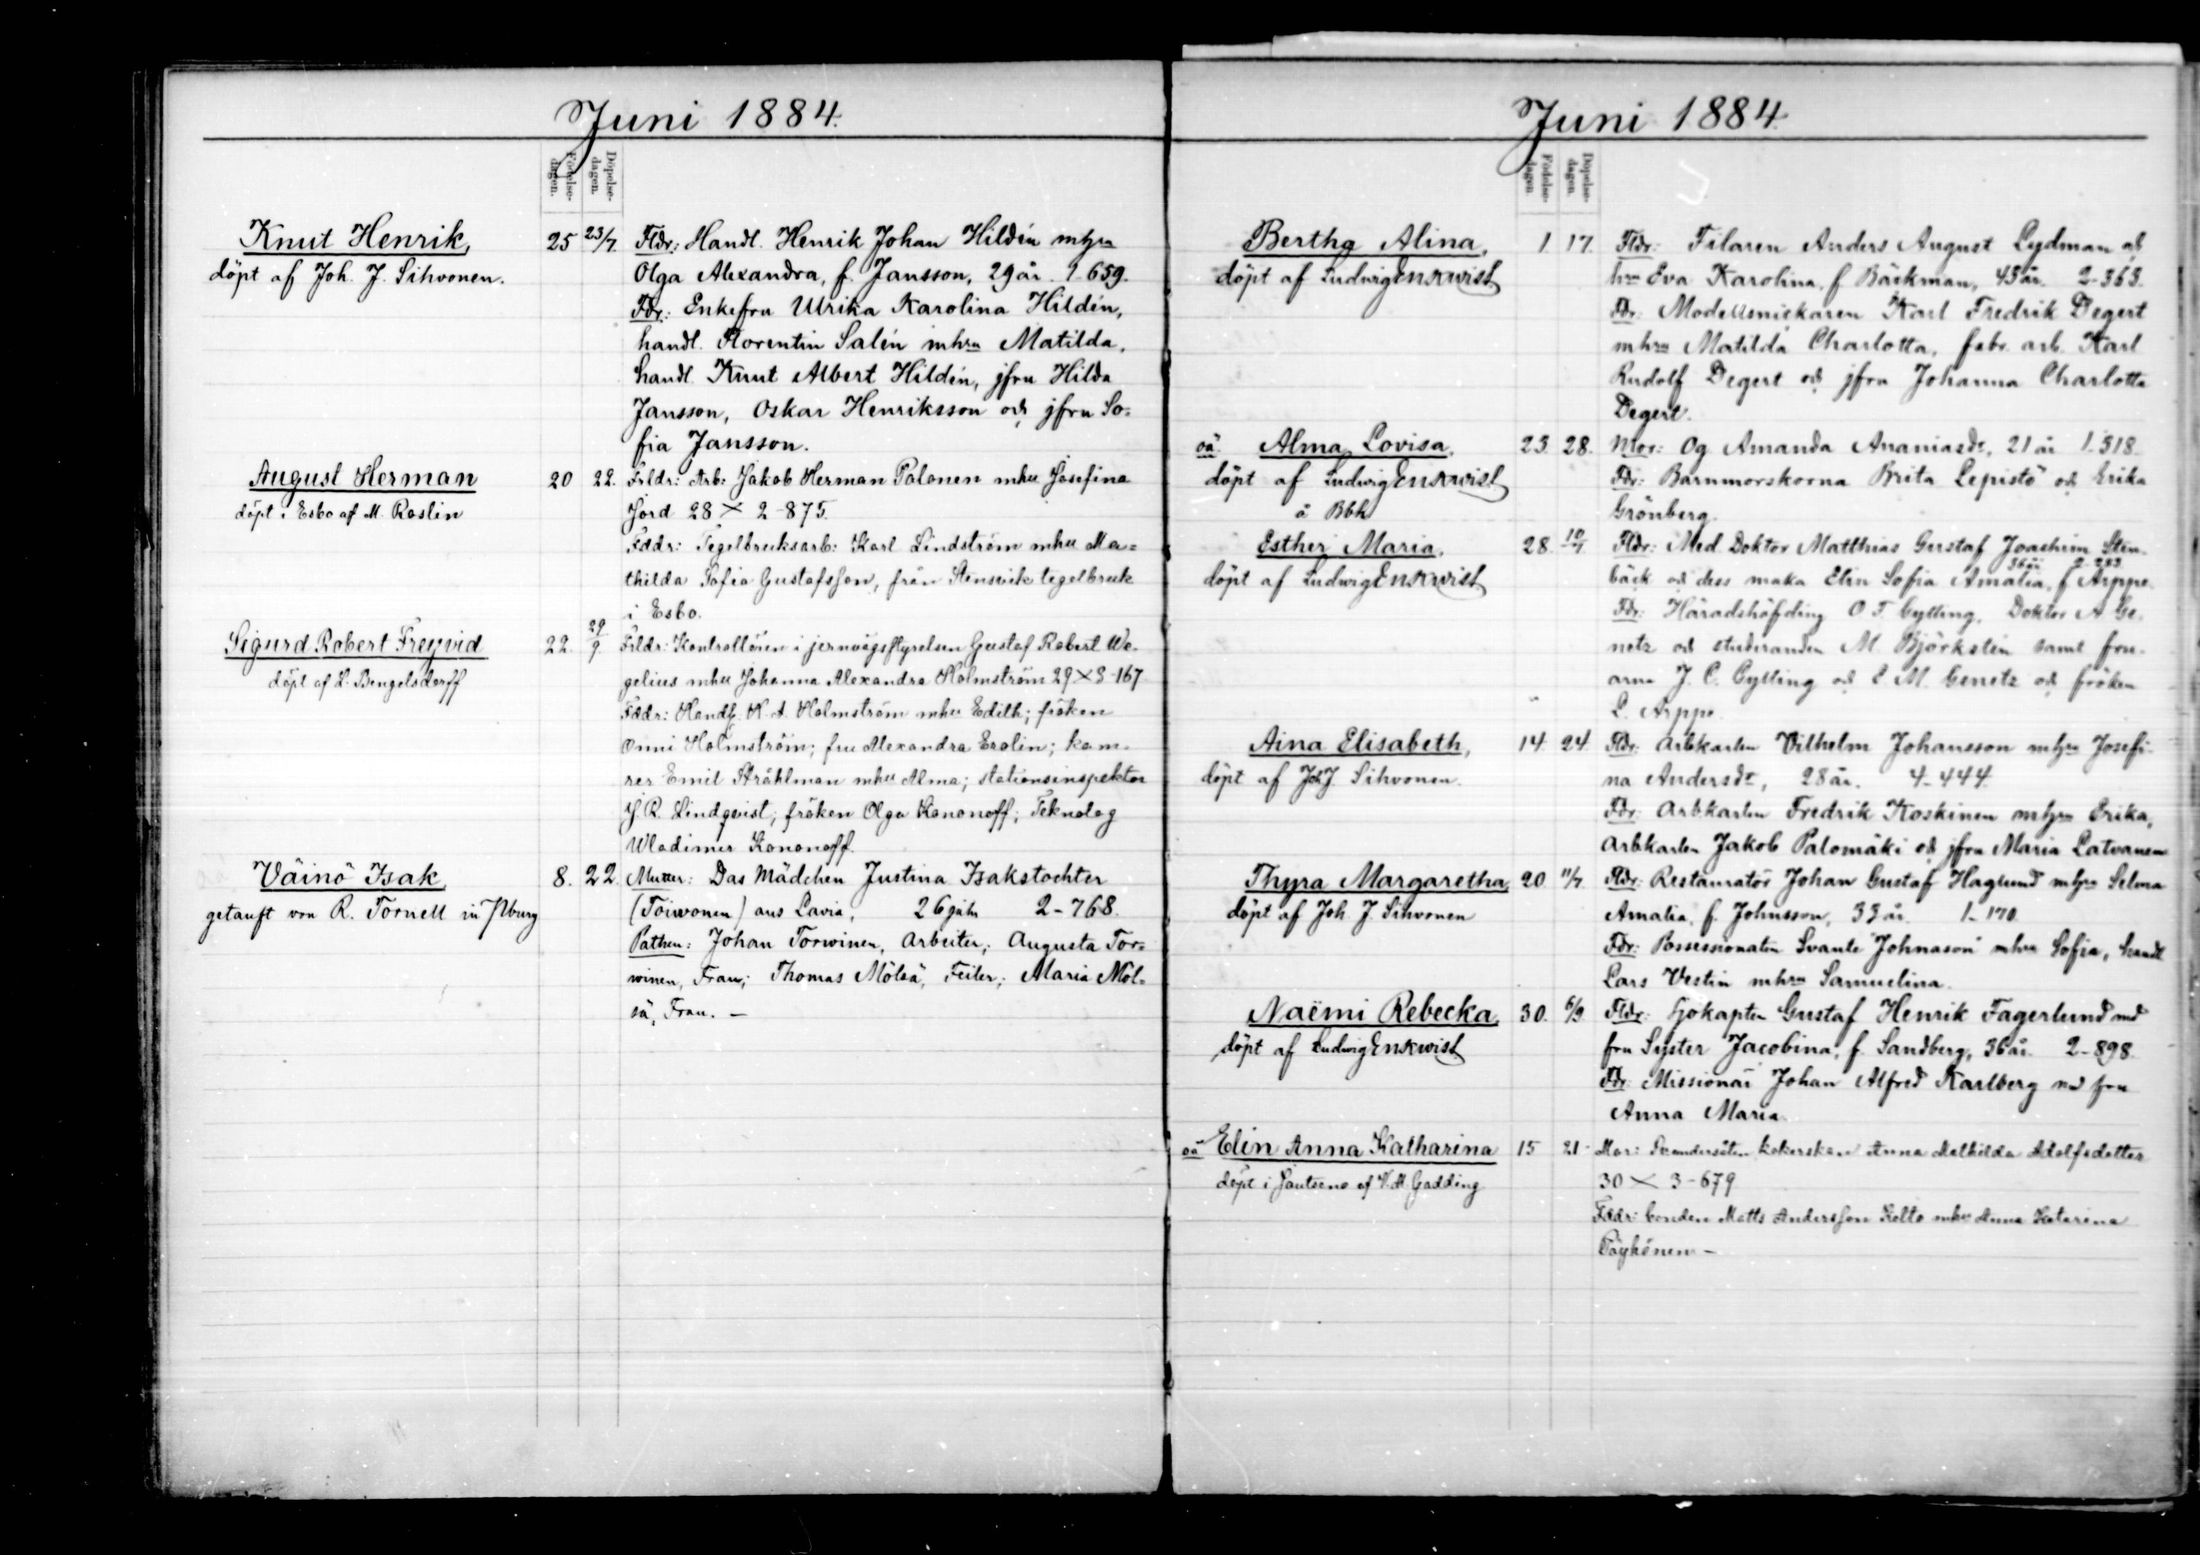 Juni 1884.
Födelse-dagen.
Döpelse-dagen.
Knut Henrik,
döpt af Joh. J. Sihvonen.
25 23/7. Fldr: Handl. Henrik Johan Hildén mhru
Olga Alexandra, f. Jansson, 29 år. 1-659.
Fdr: Enkefru Ulrika Karolina Hildén,
handl. Florentin Salén mhru Matilda,
handl. Knut Albert Hildén, jfru Hilda
Jansson, Oskar Henriksson och jfru So-
fia Jansson.
August Herman
döpt i Esbo af M. Roslin
20 22. Frldr: Arb: Jakob Herman Palonen mhu Josefina
Jord 28 × 2-875.
Fddr: Tegelbruksarb: Karl Lindström mhu Ma-
thilda Sofia Gustafsson, från Stensvik tegelbruk
i Esbo.
Sigurd Robert Freyvid
döpt af H. Bengelsdorff
22. 29/9. Frldr: Kontrollören i jernvägsstyrelsen Gustaf Robert We-
gelius mhu Johanna Alexandra Holmström 29 × 3-167
Fddr: Handl. K. A. Holmström mhu Edith; fröken
Onni Holmström; fru Alexandra Erolin; kam-
rer Emil Stråhlman mhu Alma; stationsinspektor
J. R. Lindqvist; fröken Olga Kononoff; Teknolog
Wladimir Kononoff.
Väinö Isak,
getauft von R. Tornell in Pburg
8. 22. Mutter: Das Mädchen Justina Isakstochter
(Toivonen) aus Lavia, 26 jahr 2-768.
Pathen: Johan Torwinen, Arbeiter; Augusta Tor-
winen, Frau; Thomas Mölsä, Feiler; Maria Möl-
sä, Frau. –
Juni 1884.
Födelse-dagen.
Döpelse-dagen.
Bertha Alina,
döpt af Ludwig Enskvist
1. 17. Fldr: Filaren Anders August Lydman och
hru Eva Karolina, f. Bäckman, 43 år. 2-363.
Fdr: Modellsnickaren Karl Fredrik Degert
mhru Matilda Charlotta, fabr. arb. Karl
Rudolf Degert och jfru Johanna Charlotta
Degert.
oä. Alma Lovisa,
döpt af Ludwig Enskvist
å Bbh
23. 28. Mor: Og. Amanda Ananiasdr, 21 år 1-318.
Fdr: Barnmorskorna Brita Lepistö och Erika
Grönberg.
Esther Maria,
döpt af Ludwig Enskvist
28. 10/7. Fldr: Med. Doktor Matthias Gustaf Joachim Sten-
36 år 2-283.
bäck och dess maka Elin Sofia Amalia, f. Arppe.
Fdr: Häradshöfding O. F. Gylling, Doktor A. Ge-
netz och studeranden M. Björkstén samt fru-
arna J. C. Gylling och E. M. Genetz och fröken
L. Arppe.
Aina Elisabeth,
döpt af Joh J. Sihvonen.
14. 24. Fldr: Arbkarlen Vilhelm Johansson mhru Josefi-
na Andersdr, 28 år. 4-444.
Fdr: Arbkarlen Fredrik Koskinen mhru Erika,
Arbkarlen Jakob Palomäki och jfru Maria Latvanen
Thyra Margaretha,
döpt af Joh. J. Sihvonen
20. 11/7. Fldr: Restauratör Johan Gustaf Haglund mhru Selma
Amalia, f. Johnsson, 33 år. 1-170.
Fdr: Possessionaten Svante Johnason mhru Sofia, handl.
Lars Vestin mhru Samuelina.
Naëmi Rebecka,
döpt af Ludwig Enskvist
30. 6/9. Fldr: Sjökapten Gustaf Henrik Fagerlund med
fru Syster Jacobina, f. Sandberg, 36 år. 2-898.
Fdr: Missionär Johan Alfred Karlberg med fru
Anna Maria.
oä Elin Anna Katharina
döpt i Jautseno af V. M. Gadding
15 21. Mor: kokerskan Anna Mathilda Adolfsdotter
30 × 3-679
Fddr: bonden Matts Andersson Kelto mhu Anna Katarina
Pöyhönen –